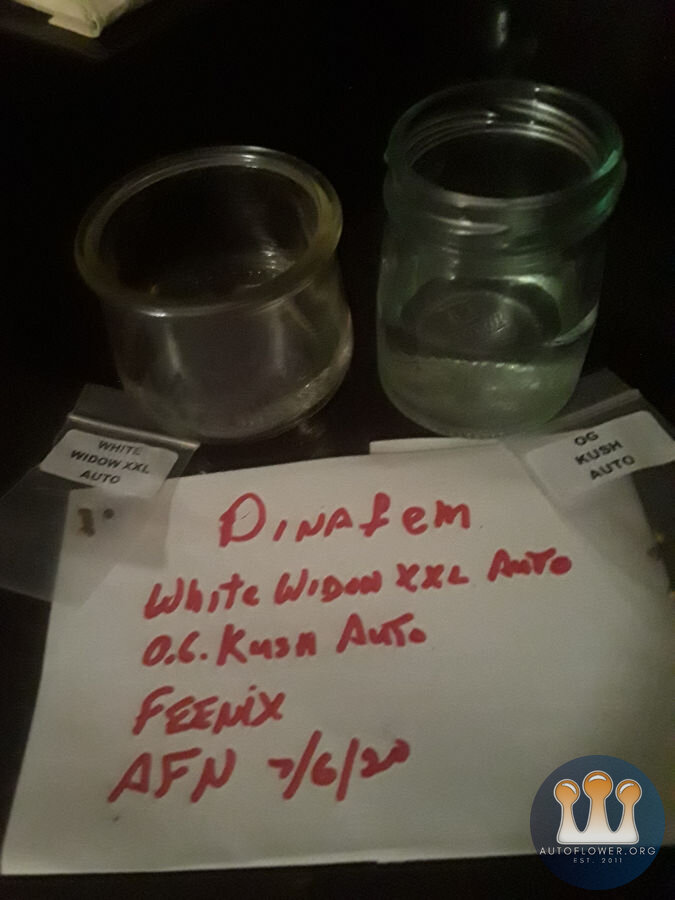 WHITE
WIDOW XXL
AUTO
OG
KUSH
AUTO
DINAfem
White WIDOW XXL AUTO
O.G. KusH AuTo
FEENiX
AFN 7/6/20
AUTOFLOWER.ORG
EST. 2011